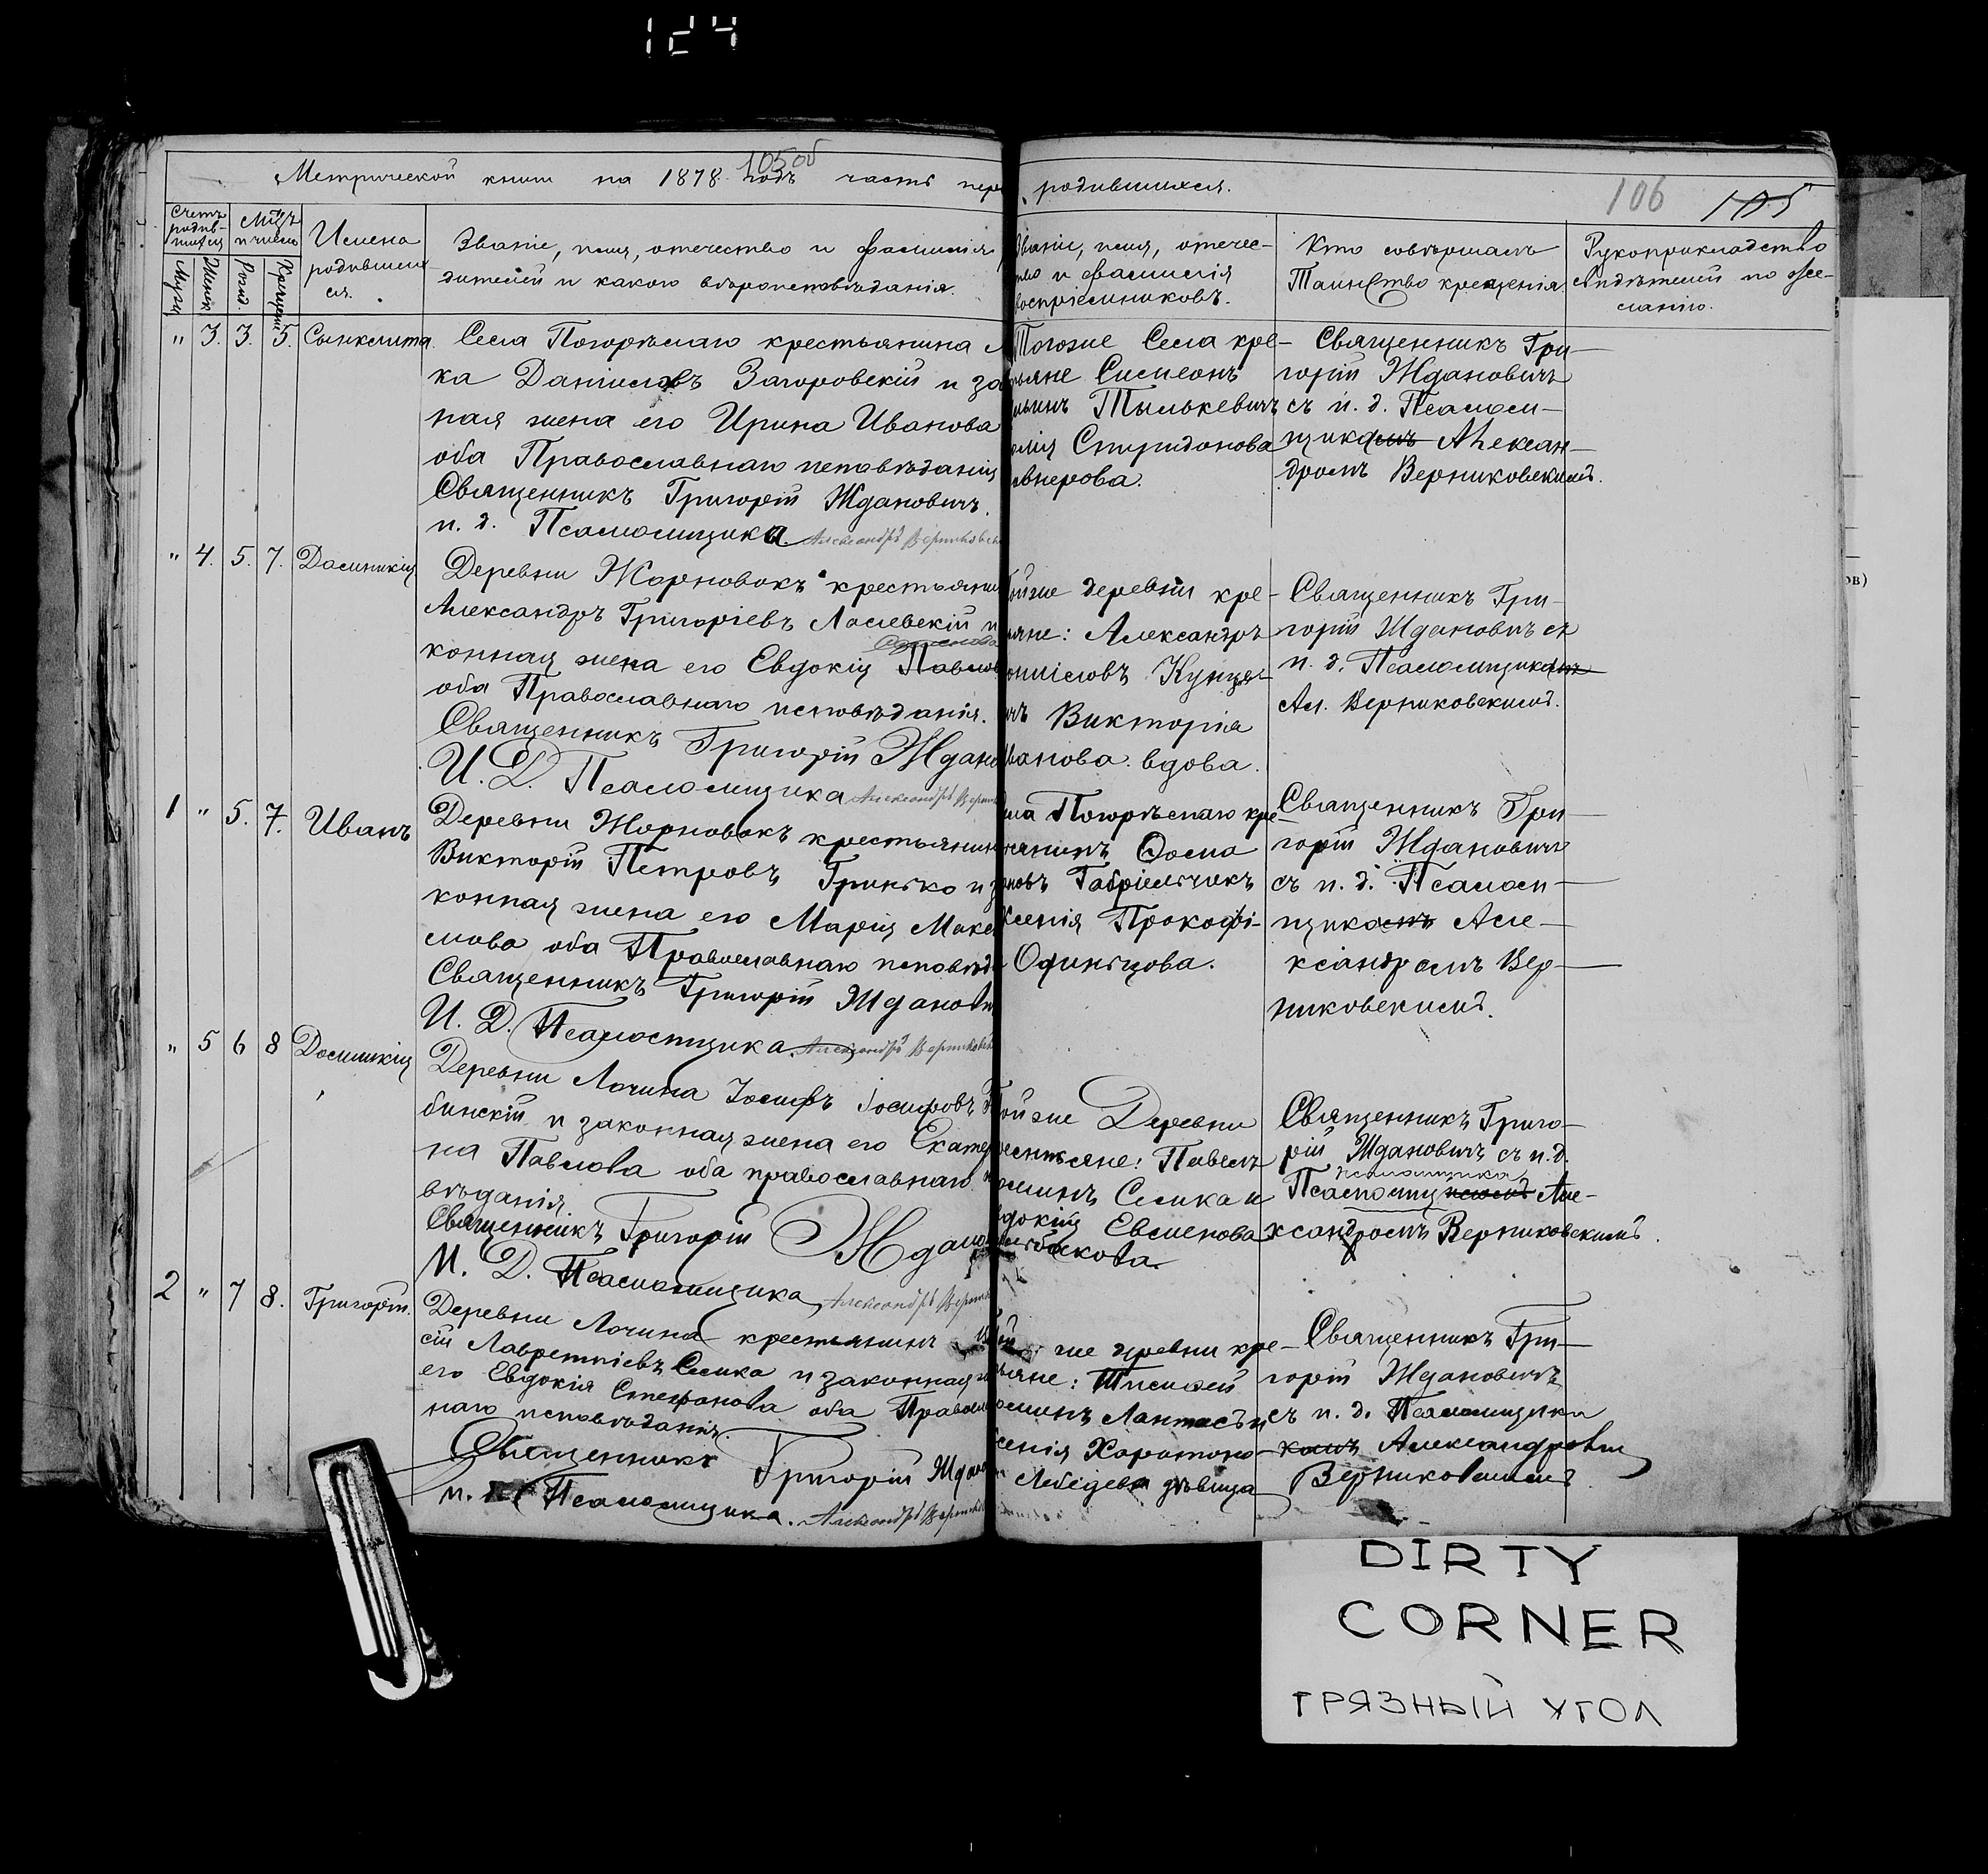 124
105об
Метрической книги на 1878 годъ часть пер
родившихся.
106 105
Счетъ родив-шихся
Мужск
Женск
Мѣцъ и число
Рожд.
Крещен
Имена родившихся.
Званіе, имя, отечество и фамилія
дителей и какого вѣроисповѣданія.
Званіе, имя, отечес-
тво и фамилія
воспріемниковъ.
Кто совершалъ
Таинство крещенія
Рукоприкладство
свидѣтелей по же-
ланію.
" 3. 3. 5. Сынклита
Села Погорѣлаго крестьянина
ка Даніиловъ Загоровскій и за
ная жена его Ирина Иванова
оба Православнаго исповѣданія
Священникъ Григорій Ждановичъ.
и. д. Псаломщика Александръ
Тогоже Села кре-
тьяне Симеонъ
Тылькевичъ
Спиридонова
Священникъ Гри-
горій Ждановичъ
съ и. д. Псалом-
щика Алексан-
дромъ Верниковскимъ.
" 4. 5. 7. Домникія
Деревни Жорновокъ крестьянин
Александръ Григоріевъ Лосіевскій и
конная жена его Евдокія Павлов
оба Православнаго исповѣданія.
Священникъ Григорій Ждано
И. Д. Псаломщика Александръ
ойже деревни кре-
яне: Александръ
Викторія
ванова вдова.
Священникъ Гри-
горій Ждановичъ съ
и. д. Псаломщика
Ал. Верниковскимъ.
1 " 5. 7. Иванъ
Деревни Жорновокъ крестьянин
Викторій Петровъ Гринько и з
конная жена его Марія Макс
мова оба Православнаго исповѣд
Священникъ Григорій Жданови
И. Д. Псаломщика Александръ
ла Погорѣлаго кре
Ѳома
новъ Габріельчикъ
Ксенія Прокофі-
Одинцова.
Священникъ Гри-
горій Ждановичъ
съ и. д. Псалом-
щика Але-
ксандромъ Вер-
никовскимъ.
" 5 6 8 Домникія
Деревни Лочина Іосифъ Іосифовъ
бинскій и законная жена его Екате
на Павлова оба православнаго
вѣданія.
Священникъ Григорій Ждано
И. Д. Псаломщика Александръ
ойже Деревни
рестьяне: Павелъ
Селика и
вдокія Евменова
Священникъ Григо-
рій Ждановичъ съ и. д.
псаломщика
Псаломщ Але-
ксандромъ Верниковскимъ.
2 " 7 8. Григорій.
Деревни Лочина крестьянин
сій Лаврентіевъ Селика и законная
его Евдокія Стефанова оба Правосл
наго исповѣданія.
Священникъ Григорій Ждан
и. д. Псаломщика. Александръ
же деревни кре-
тьяне: Тимоѳей
сенія Харитоно-
Лебедева дѣвица
Священникъ Гри-
горій Ждановичъ
съ и. д. Псаломщика
Александромъ
Верниковскимъ
DIRTY
CORNER
ГРЯЗНЫЙ УГОЛ
ов)